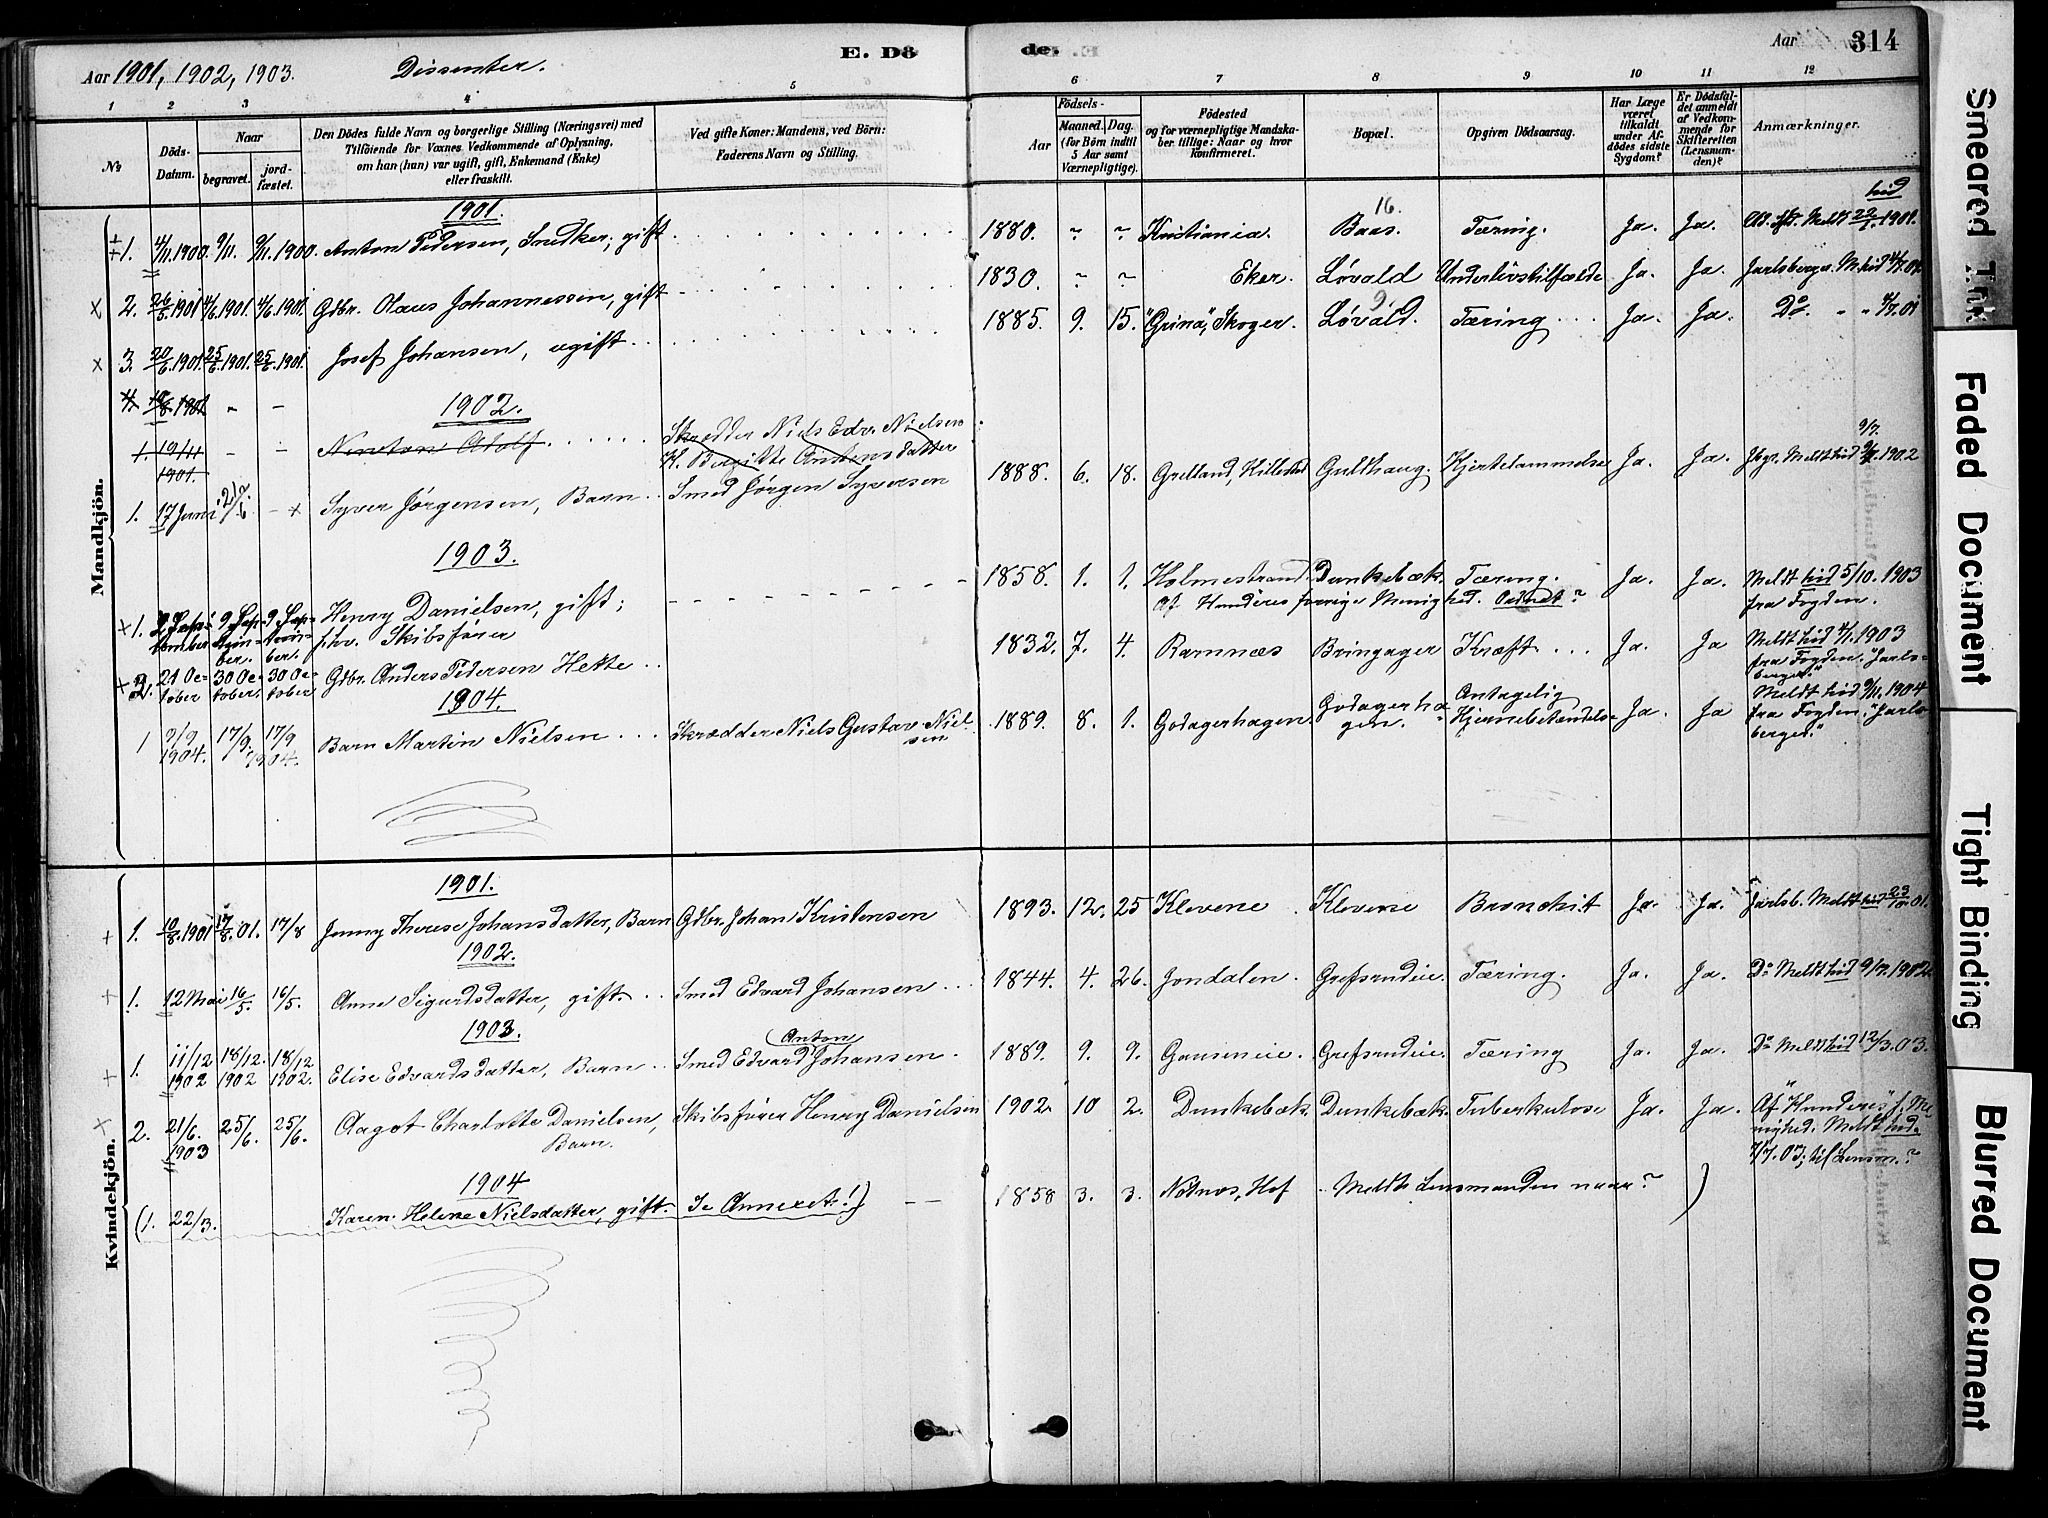 E. Dö
de.
Aar 314
Aar 1901, 1902, 1903. Dissenter.
1 2 3 4 5 6 7 8 9 10 11 12
No
Döds-Datum.
Naar
begravet.
jord-fæstet.
Den Dödes fulde Navn og borgerlige Stilling (Næringsvei) med
Tilföiende for Voxnes Vedkommende af Oplysning,
om han (hun) var ugift, gift, Enkemand (Enke)
eller fraskilt.
Ved gifte Koner: Mandens, ved Börn:
Faderens Navn og Stilling.
Födsels-
Aar
Maaned. Dag.
(for Börn indtil
5 Aar samt
Værnepligtige).
Födested
og for værnepligtige Mandska-
ber tillige: Naar og hvor
konfirmeret.
Bopæl.
Opgiven Dödsaarsag.
Har Læge
været
tilkaldt
under Af-
dödes sidste
Sygdom?
Er Dödsfal-
det anmeldt
af Vedkom-
mende for
Skifteretten
(Lensman-
den)?
Anmærkninger.
Mandkjön.
1901.
1. 4/11 1900. 9/11. 9/11 1900. Anton Pedersen, Snedker; gift 1880. Kristiania. Baas. 16. Tæring. Ja. Ja. Meldt hid 22/1 1901.
2. 26/5 1901 4/6 1901. 4/6 1901. Gdbr. Olaus Johannessen, gift 1830. Eker. Løvald Underlivstilfælde Ja. Ja. Jarlsberger. M. hid 4/7.01.
3. 20/6 1901. 25/6 1901. 25/6 1901. Josef Johansen, ugift 1885. 9. 15. "Grina", Skoger. Løvald. 9 Tæring Ja. Ja. Do. " " 4/7.01
4. 19/8 1901 - -
1902.
1. 19/11 1901. - - Newton Adolf Skrædder Niels Edv. Nielsen
H. Birgitte Anstensdatter
1. 17 Juni 21/6. - Syver Jørgensen, Barn Smed Jørgen Syversen 1888. 6. 18. Grelland, Hillestad Gulthaug. Kjertelammelse Ja. Ja. Jbgr. Meldt hid 9/7. 1902
1903.
1. 2 Sep-tember 9 Sep-tem-ber. 9 Sep-tem-ber. Henry Danielsen, gift;
fhv. Skibsfører 1858. 1. 1. Holmestrand. Dunkebæk. Tæring. Ja. Ja. Meldt hid 5/10. 1903
fra Fogden.
Af Hunderes frie Menighed.
2. 21 Oc-tober 30 Oc-tober. 30 Oc-tober Gdbr. Anders Pedersen Hekte 1832. 7. 4. Ramnæs Bringager Kræft Ja. Ja Meldt hid 4/1. 1903
fra Fogden. "Jarls-
berger."
1904.
1 9/9 1904. 17/9. 17/9 1904. Barn Martin Nielsen Skrædder Niels Gustav Niel-
sen 1889. 8. 1. Godagerhagen Godagerha-
gen. Antagelig
Hjernebetændelse Ja. Ja Meldt hid 9/11. 1904
fra Fogden. "Jarls-
berger."
Kvindekjön.
1901.
1. 10/8. 1901 17/8. 01. 17/8 Jenny Therese Johansdatter, Barn Gdbr. Johan Kristensen 1893. 12. 25 Klevene Klevene Bronchit Ja. Ja. Jarlsb. Meldt hid 23/10. 01.
1902.
1. 12 Mai 16/5 16/5. Anne Sigurdsdatter, gift Smed Edvard Johansen 1844. 4. 26. Jondalen. Grefsrudeie. Tæring. Ja. Ja. Do Meldt hid 9/7. 1902.
1903.
1. 11/12 1902 18/12. 1902 18/12 1902. Elise Edvardsdatter, Barn Smed Edvard (Anton) Johansen 1889. 9. 9. Gauseneie. Grefsrudeie. Tæring Ja. Ja. Do Meldt hid 12/3. 03.
2. 21/6. 1903 25/6. 25/6. Aagot Charlotte Danielsen,
Barn. Skibsfører Henry Danielsen 1902. 10 2. Dunkebæk. Dunkebæk. Tuberkulose Ja. Ja. Af "Hunderes" f. Me-
nighed. Meldt hid
7/7. 03; til Lensm.?
1904
(1. 22/3. Karen Helene Nielsdatter, gift. Se Annexet!) 1858 3. 3. Hof Meldt Lensmanden naar? )
Smeared Ink
Faded Document
Tight Binding
Blurred Document